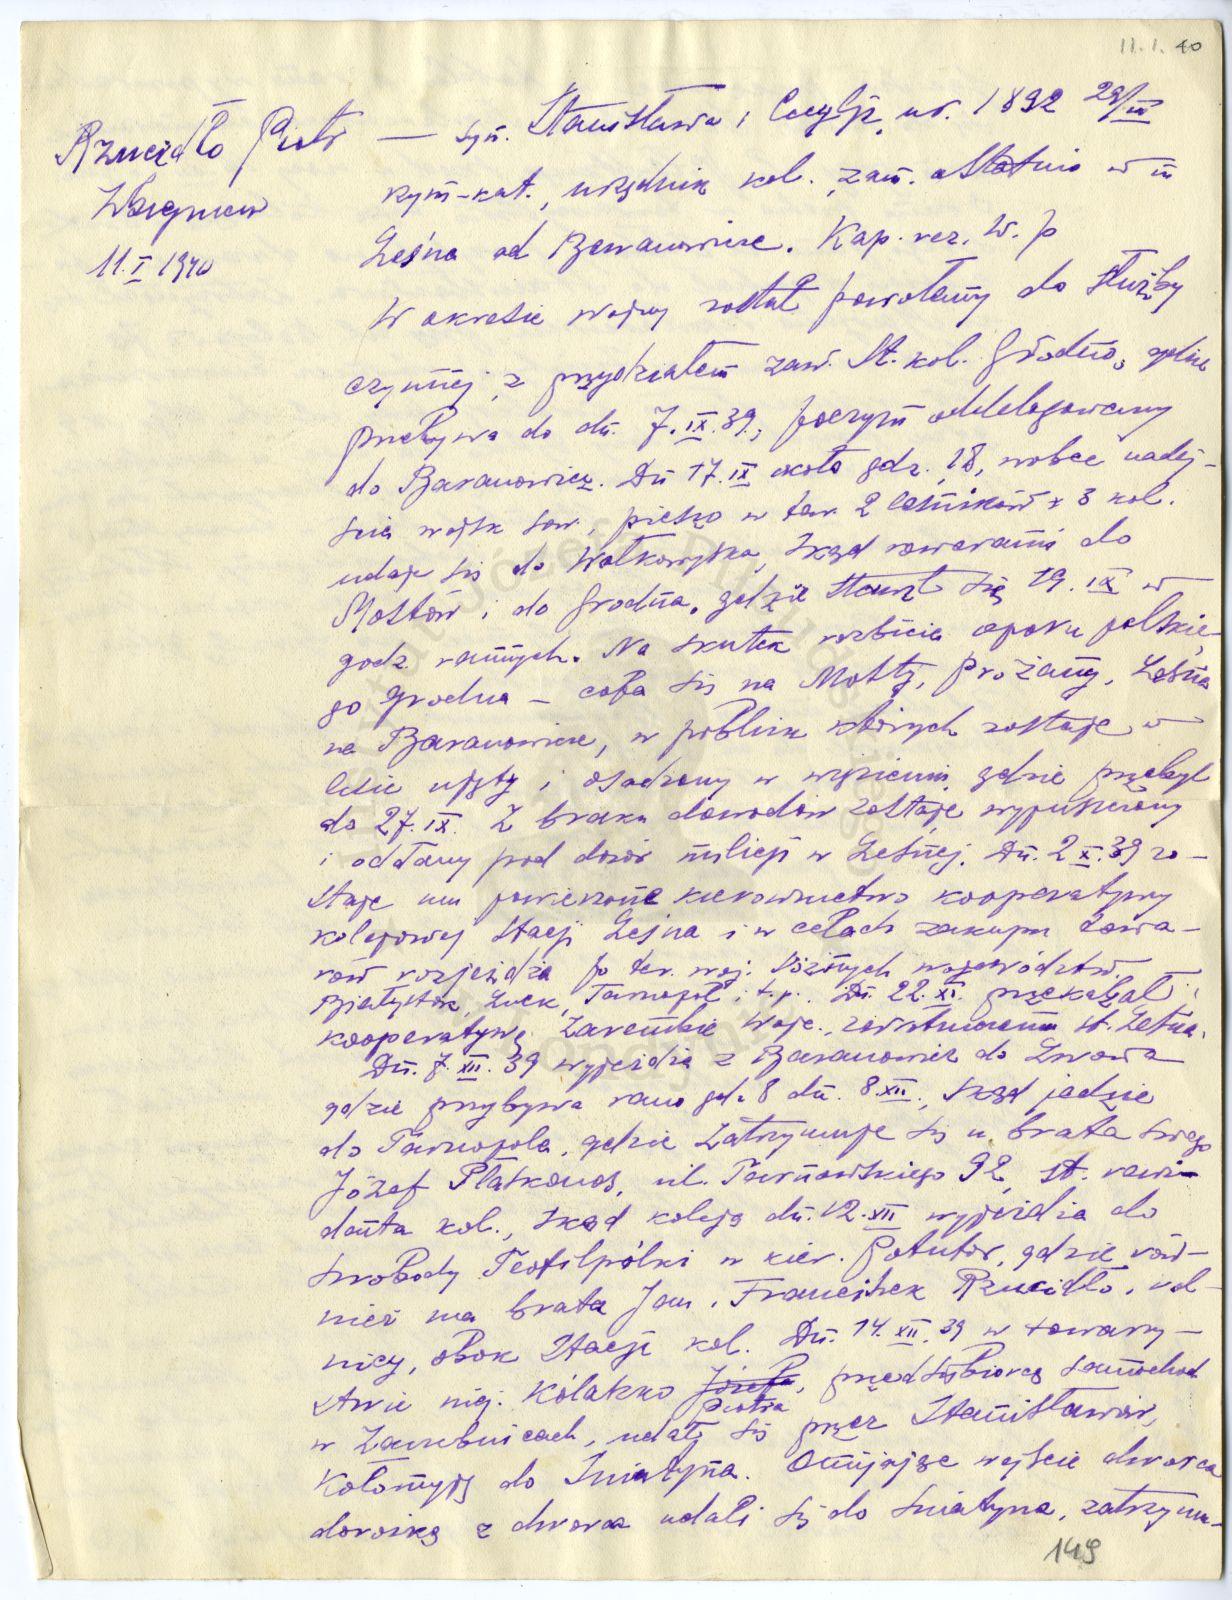 11.I.40
Rzucidło Piotr — syn. Stanisława i Cecylji, ur. 1892 29/III
Zbigniew
11.I 1940
rzym-kat., urzędnik kol. zam. ostatnio w m
Leśna od Baranowicze. Kap. rez. W. p
W okresie wojny został powołany do służby
czynnej z przydziałem zaw. St. kol. Grodno, gdzie
przebywa do dn. 7.IX.39., poczym oddelegowany
do Baranowicz. Dn 17.IX około godz. 18, wobec nadej-
ścia wojsk sow, pieszo w tow. 2 leśników i 3 kol.
udaje się do Wołkowyska, skąd rowerami do
Mostów i do Grodna, gdzie stawił się 19.IX w
godz rannych. Na skutek rozbicia oporu polskie-
go Grodna – cofa się na Mosty, Prożany, Leśna
na Baranowicze, w pobliżu których zostaje w
lesie ujęty i osadzony w więzieniu gdzie przebył
do 27.IX. Z braku dowodów zostaje wypuszczony
i oddany pod dozór milicji w Leśnej. Dn. 2 X.39 zo-
staje mu powierzone kierownictwo kooperatywy
kolejowej Stacji Leśna i w celach zakupu towa-
rów rozjeżdża po ter. woj. różnych województw.
Białystok, Łuck, Tarnopol i t.p. Dn. 22.XI. przekazał
kooperatywę Zarembie zawiadowcy st. Leśna.
Dn. 7.XII.39 wyjeżdża z Baranowicz do Lwowa
gdzie przybywa rano gdz 8 dn. 8.XII., skąd jedzie
do Tarnopola, gdzie zatrzymuje się u brata swego
Józef ul. Tarnowskiego 92, st. rewi-
denta kol., skąd koleją dn. 12.XII wyjeżdża do
Swobody Teofilpólki w kier. Potutor, gdzie rów-
nież ma brata Jan, Franciszek Rzucidło, rol-
nicy, obok Stacji kol. Dn. 14.XII.39 w towarzy-
stwie niej. Kólatzko Józefa, przedsiębiorcą samochod
Piotra
w udały się przez Stanisławów,
Kołomyję do Śniatyna. Omijając wejście dworca
dorożką z dworca udali się do Śniatyna, zatrzymu-
149